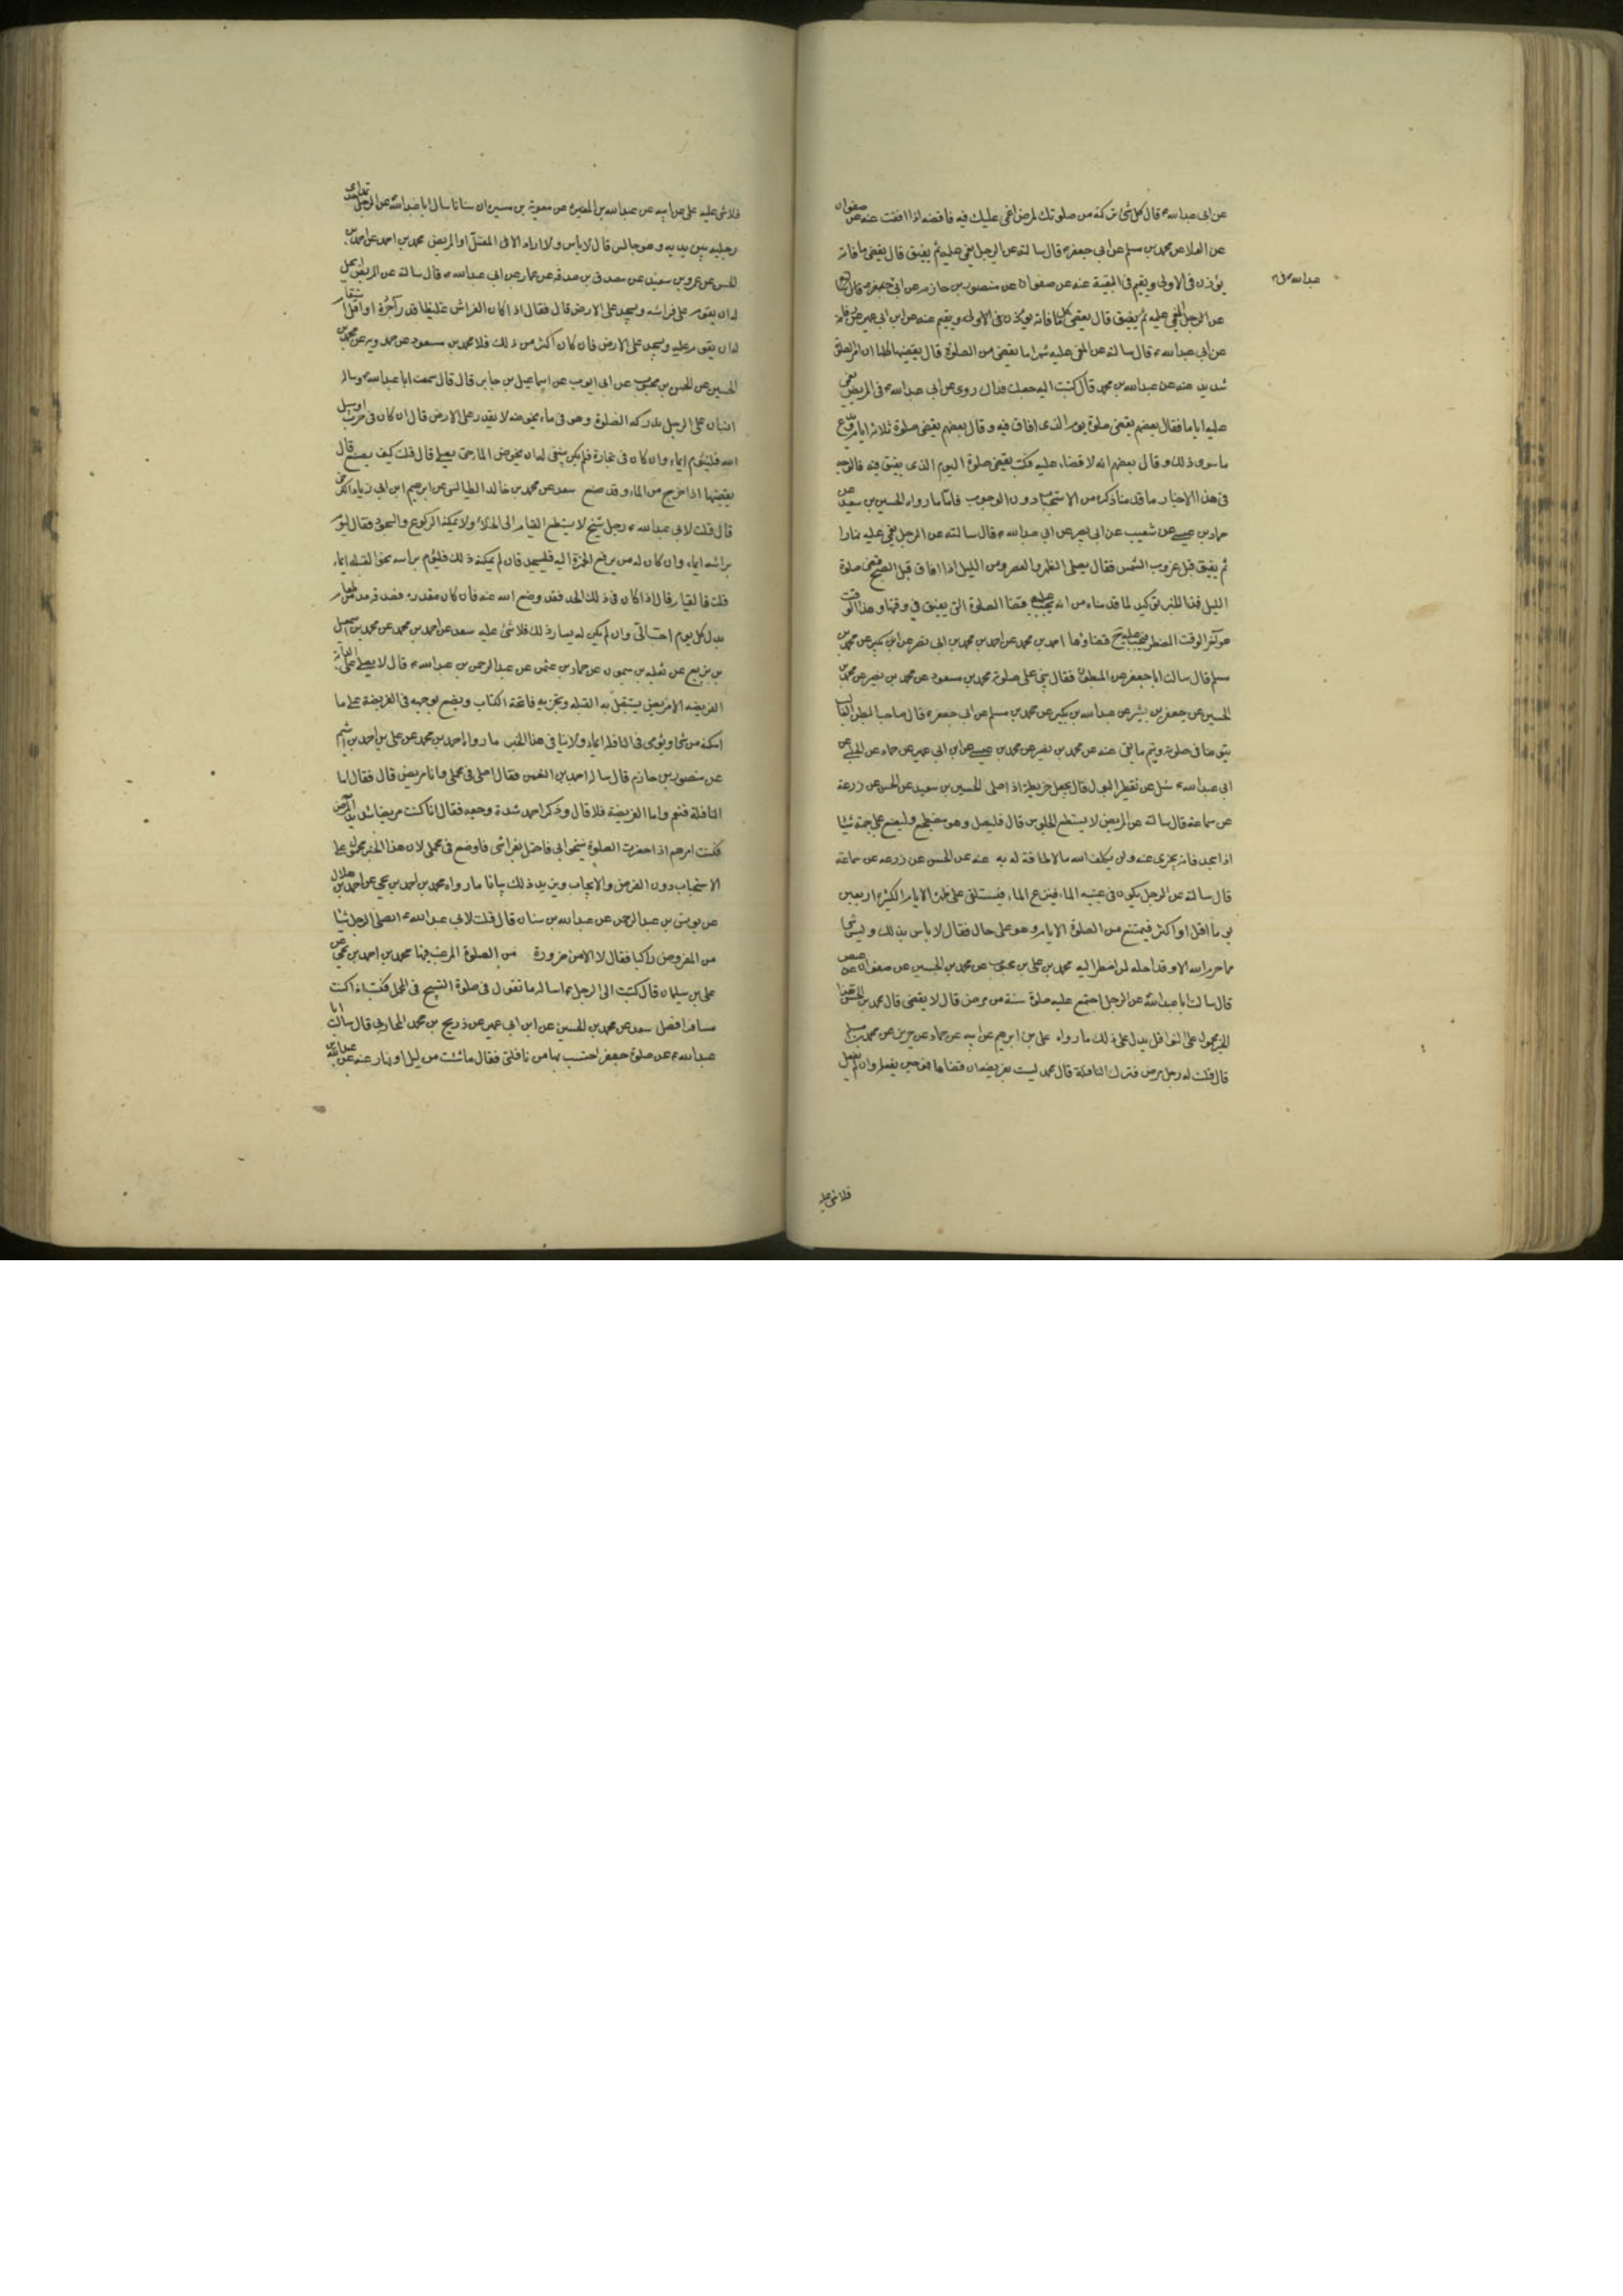 عن ابى عبدالله ء قال كل شئ تركته من صلوتك لمرض اغمى عليك فيه فاقضه اذا افقت عنه عن صفوان
عن العلا عن محمد بن مسلم عن ابى جعفر ء قال سالته عن الرجل يغمى عليه ثم يفيق قال يقضى ما فاته
يؤذن فى الاولى ويقيم فى البقية عنه عن صفوان عن منصور بن حازم عن ابى
عن الرجل المغمى عليه ثم يفيق قال يقضى كل ما فاته يؤذن فى الاولى ويقيم عنه عن ابن ابى عمير عن رفاعة
عن ابى عبدالله ء قال سالته عن المغمى عليه شهرا ما يقضى من الصلوة قال يقضيها كلها ان امر الصلوة
شديد عنه عن عبدالله بن محمد قال كتبت اليه جعلت فداك روى عن ابى عبدالله ء فى المريض يغمى
عليه اياما فقال بعضهم يقضى صلوة يومه الذى افاق فيه وقال بعضهم يقضى صلوة ثلاثة ايام ويدع
ما سوى ذلك وقال بعضهم انه لا قضاء عليه فكتب يقضى صلوة اليوم الذى يفيق فيه فالوجه
فى هذا الاخبار ما قدمنا ذكره من الاستحباب دون الوجوب فاما ما رواه الحسين بن سعيد عن
حماد بن عيسى عن شعيب عن ابى بصير عن ابى عبدالله ء قال سالته عن الرجل يغمى عليه نهارا
ثم يفيق قبل غروب الشمس فقال يصلى الظهر والعصر ومن الليل اذا افاق قبل الصبح قضى صلوة
الليل فهذا الخبر تؤكيد لما قدمناه من انه يجب عليه قضا الصلوة التى يفيق فى وقتها وهذا الوقت
هو اخر الوقت المضطر فيجب عليه ح قضاؤها احمد بن محمد عن احمد بن محمد بن ابى نصر عن ابن بكير عن محمد بن
مسلم قال سالت ابا جعفر عن المبطون فقال يبنى على صلوته محمد بن مسعود عن محمد بن نصير عن محمد بن
الحسين عن جعفر بن بشير عن عبدالله بن بكير عن محمد بن مسلم عن ابى جعفر ء قال صاحب البطن الغالب
يتوضا فى صلوته ويتم ما بقى عنه عن محمد بن نصير عن محمد بن عيسى عن ابن ابى عمير عن حماد عن الحلبى عن
ابى عبدالله ء سئل عن تقطير البول قال يجعل خريطة اذا صلى الحسين بن سعيد عن الحسن عن زرعة
عن سماعة قال سالته عن المريض لا يستطيع الجلوس قال فليصل وهو مضطجع وليضع على جبهته شيئا
اذا سجد فانه يجزى عنه ولن يكلف الله ما لا طاقة له به عنه عن الحسن عن زرعة عن سماعة
قال سالته عن الرجل يكون فى عينيه الماء فينزع الماء فيستلقى على ظهره الايام الكثيرة اربعين
يوما اقل او اكثر فيمتنع من الصلوة الايام وهو على حال فقال لا باس بذلك وليس شئ
مما حرم الله الا وقد احله لمن اضطر اليه محمد بن على بن محبوب عن محمد بن الحسين عن صفوان عن عيص
قال سالت ابا عبدالله عن الرجل اجتمع عليه صلوة سنة من مرض قال لا يقضى قال محمد بن الحسن هذا
الخبر محمول على النوافل يدل على ذلك ما رواه على بن ابرهيم عن ابيه عن حماد عن حريز عن محمد بن مسلم
قال قلت له رجل مرض فترك النافلة قال محمد ليست بفريضة ان قضاها فهو خير يفعله وان لم يفعل
فلاشئ عليه
فلا شى عليه على عن ابيه عن عبدالله بن المغيره عن معوية بن ميسره ان سنانا سال ابا عبدالله عن الرجل يمد احدى
رجليه بين يديه وهو جالس قال لا باس ولا اراه الا قال فى المعتل او المريض محمد بن احمد عن احمد بن
الحسن عن عمرو بن سعيد عن مصدق بن صدقه عن عمار عن ابى عبدالله ء قال سالته عن المريض ايحل
له ان يقوم على فراشه ويسجد على الارض قال فقال اذا كان الفراش غليظا قدر آجرة او اقل استقام
له ان يقوم عليه ويسجد على الارض فان كان اكثر من ذلك فلا محمد بن مسعود عن حمدويه عن محمد بن
الحسين عن الحسن بن محبوب عن ابى ايوب عن اسماعيل بن جابر قال قال سمعت ابا عبدالله ء وساله
انسان على الرجل يدركه الصلوة وهو فى ماء يخوضه لا يقدر على الارض قال ان كان فى حرب او سبيل
الله فليئوم ايماء وان كان فى تجارة فلم يكن ينبغى له ان يخوض الماء حتى يصلى قال قلت كيف يصنع قال
يقضيها اذا خرج من الماء وقد ضيع سعد عن محمد بن خالد الطيالسى عن ابرهيم ابن ابى زياد الكرخى
قال قلت لابى عبدالله ء رجل شيخ لا يستطيع القيام الى الخلاء ولا يمكنه الركوع والسجود فقال ليوم
براسه ايماء وان كان له من يرفع الخمرة اليه فليسجد فان لم يمكنه ذلك فليؤم براسه نحو القبله ايماء
قلت فالصيام قال اذا كان فى ذلك الحد فقد وضع الله عنه فان كان مقدره فصدقه مد من طعام
بدل كل يوم احب الى وان لم يكن له يسار ذلك فلا شئ عليه سعد عن احمد بن محمد عن محمد بن اسمعيل
بن بزيع عن ثعلبه بن ميمون عن حماد بن عثمن عن عبد الرحمن بن عبدالله ء قال لا يصلى على الدابة
الفريضه الا مريض يستقبل به القبلة وتجزيه فاتحة الكتاب ويضع بوجهه فى الفريضة على ما
امكنه من شئ ويؤمى فى النافلة ايماء ولا ينافى هذا الخبر ما رواه احمد بن محمد عن على بن احمد بن اشيم
عن منصور بن حازم قال ساله احمد بن النعمن فقال اصلى فى محملى وانا مريض قال فقال اما
النافلة فنعم واما الفريضة فلا قال وذكر احمد شدة وجعه فقال انا كنت مريضا شديد المرض
فكنت امرهم اذا حضرت الصلوة ينيخوا بى فاحتمل بفراشى فاوضع فى محملى لان هذا الخبر محمول على
الاستحباب دون الفرض والايجاب ويزيد ذلك بيانا ما رواه محمد بن احمد بن يحيى عن احمد بن هلال
عن يونس بن عبدالرحمن عن عبدالله بن سنان قال قلت لابى عبدالله ء ايصلى الرجل شيئا
من المفروض راكبا فقال لا الا من ضرورة من الصلوة المرغب فيها محمد بن احمد بن يحيى عن
على بن سليمان قال كتبت الى الرجل ء اساله ما تقول فى صلوة التسبيح فى المحمل فكتب اذا كنت
مسافرا فصل سعد عن محمد بن الحسين عن ابن ابى عمير عن ذريح بن محمد المحاربى قال سالت ابا
عبدالله ء عن صلوة جعفر احتسب بها من نافلتى فقال ما شئت من ليل او نهار عنه عن عبدالله بن